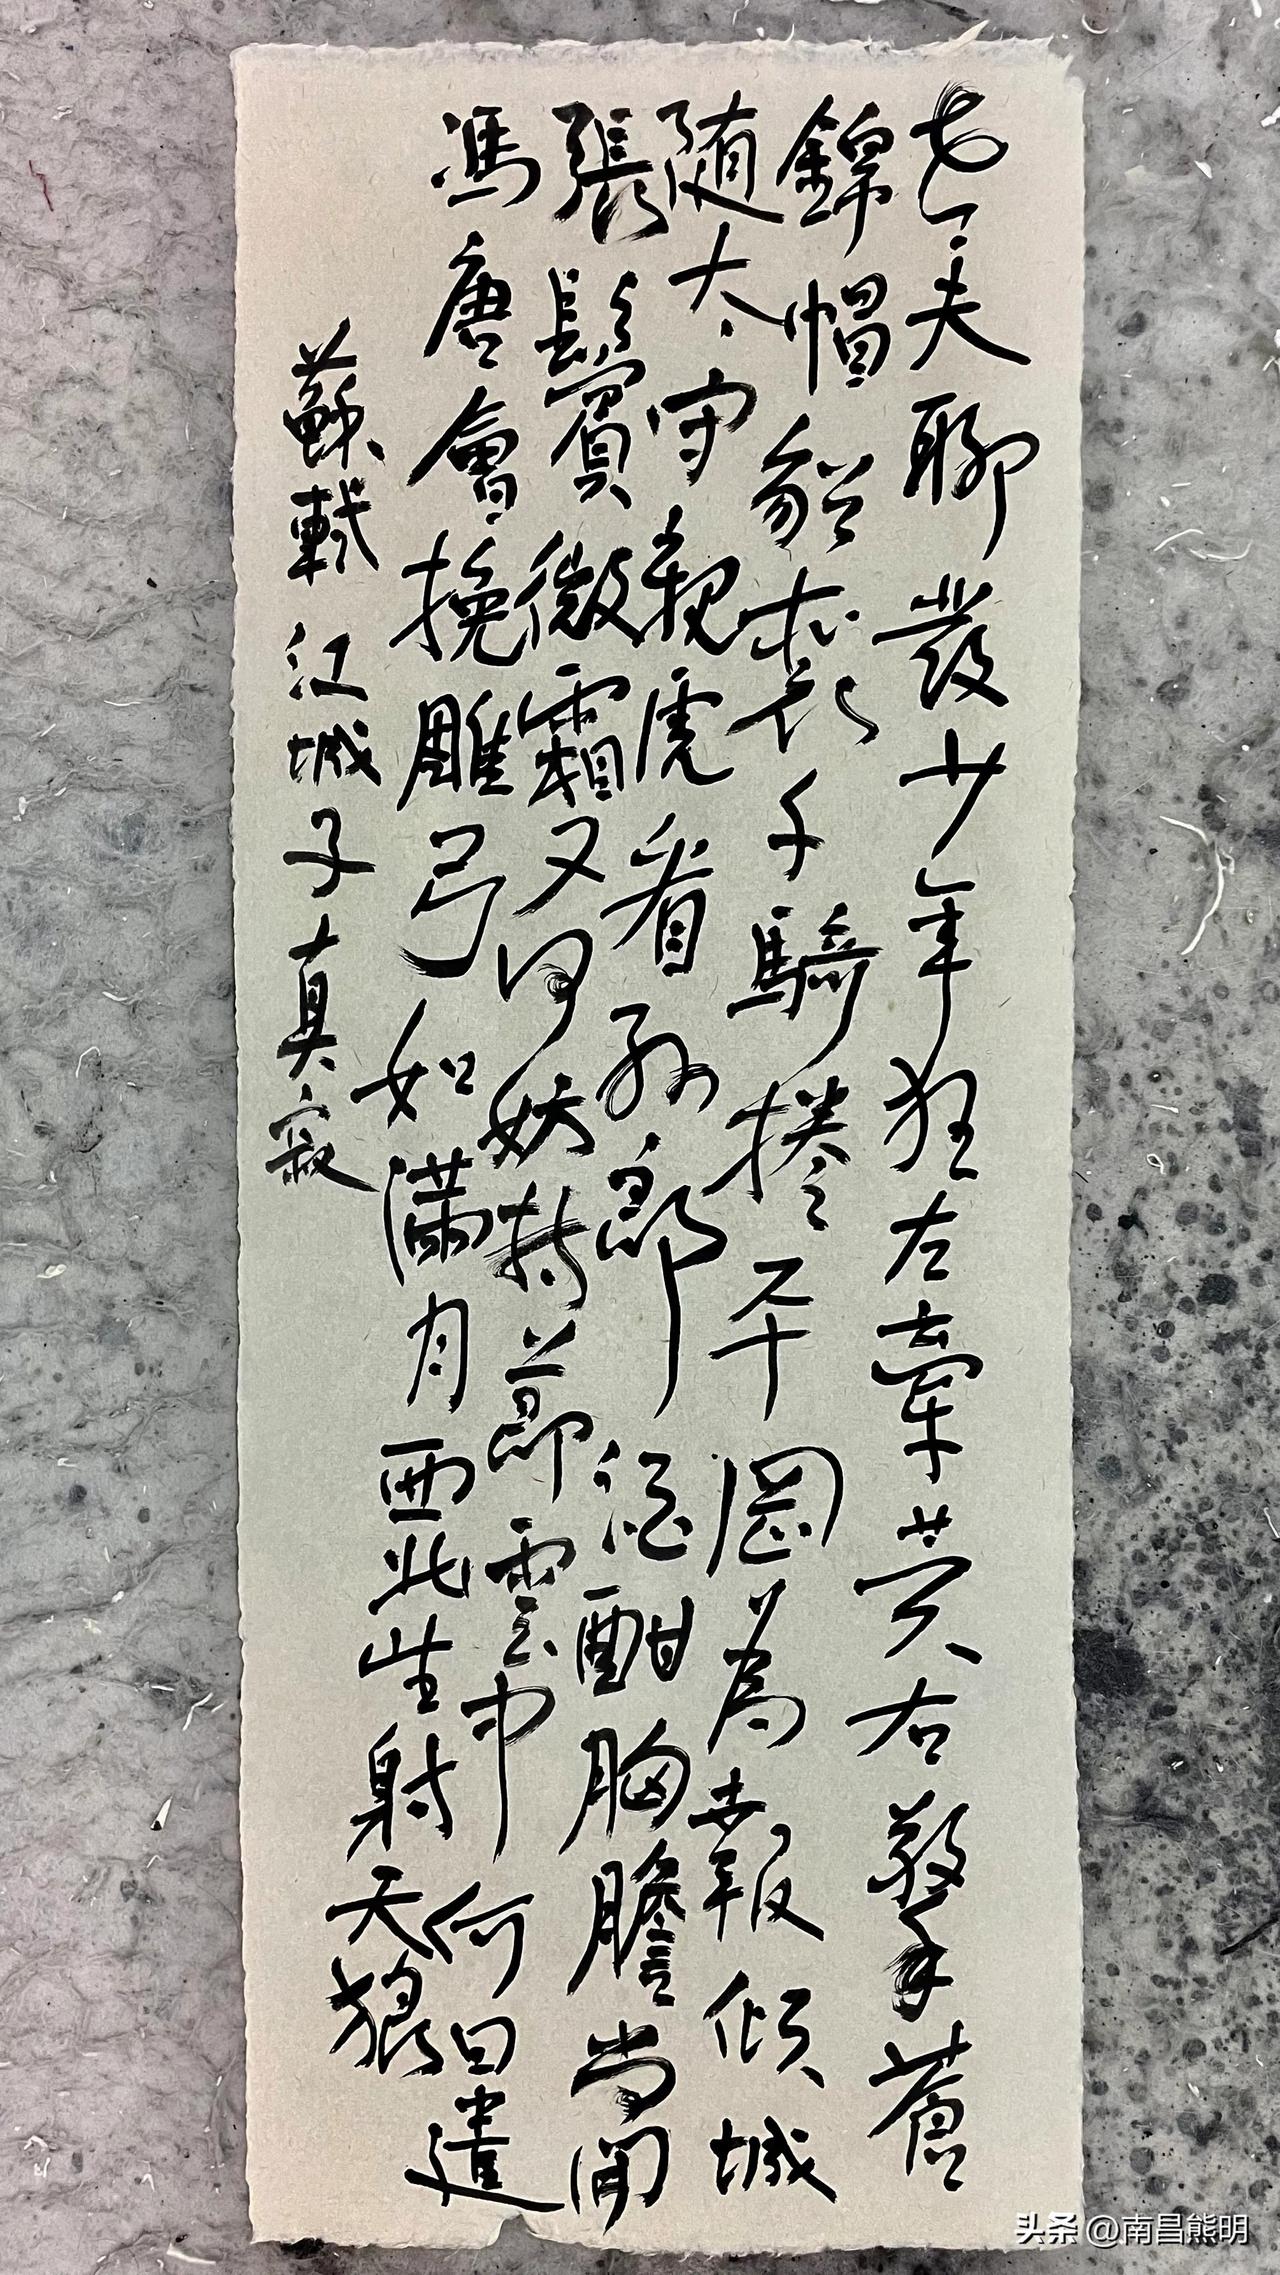 老夫聊發少年狂左牽黃右擎蒼
錦帽貂裘千騎捲平岡為報傾城
随太守親虎看孫郎酒酣胸膽尚開
張鬢微霜又何妨持節雲中何日遣
馮唐會挽雕弓如滿月西北望射天狼
蘇軾 江城子 真寂
头条 @南昌熊明